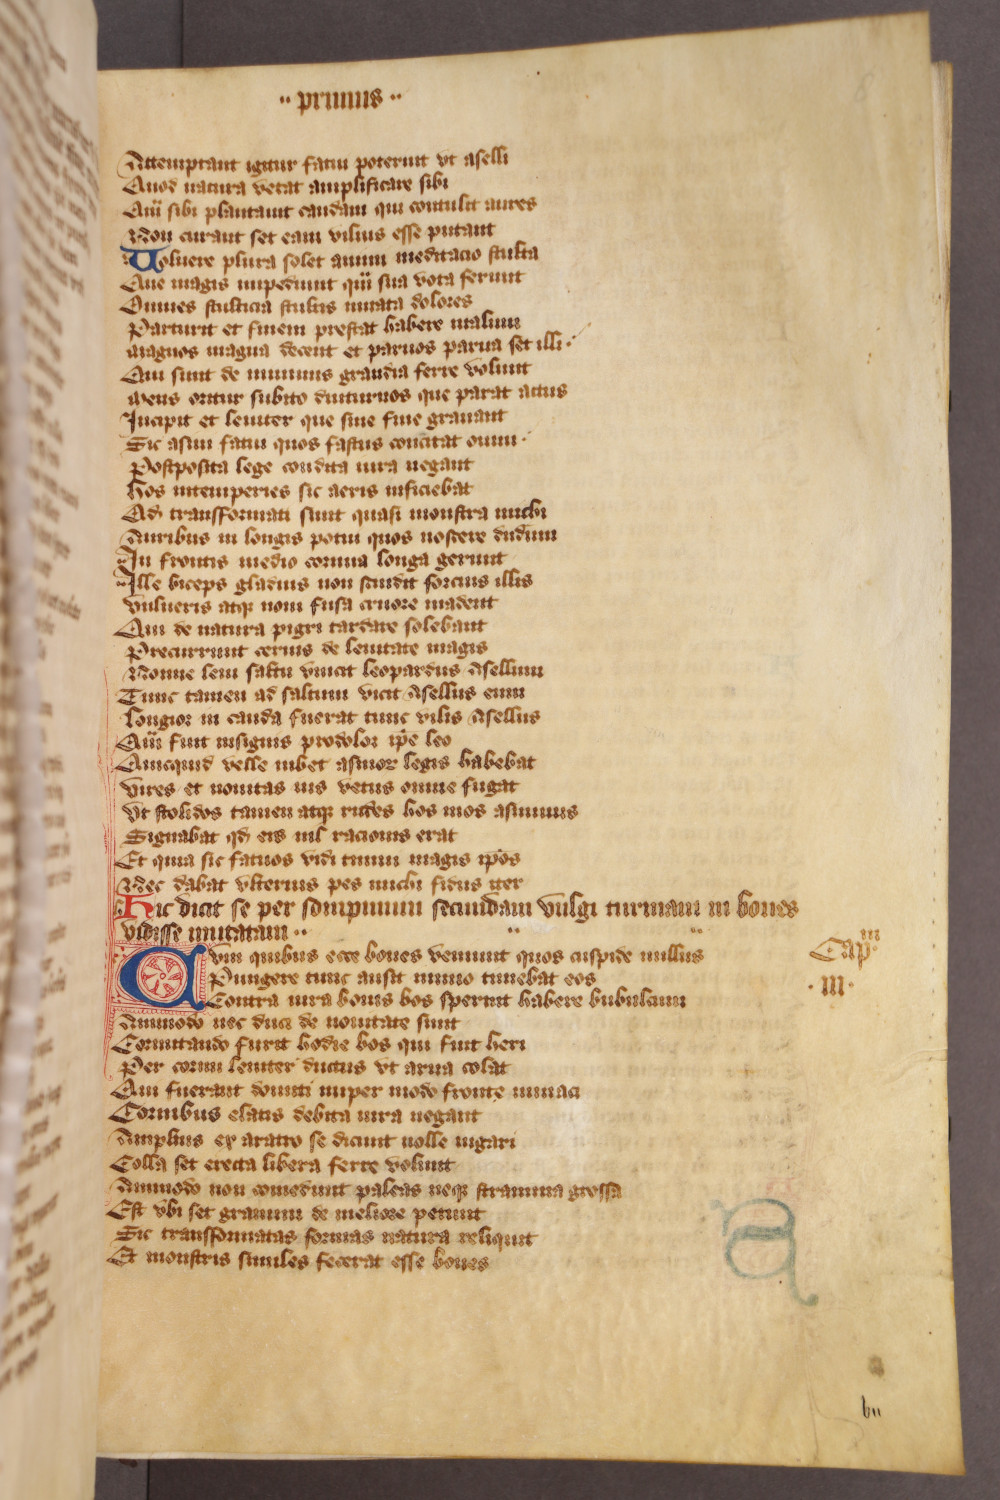 ·· primus ··
8
Attemptant igitur fatui poterunt vt aselli
Quod natura vetat amplificare sibi
Qui sibi plantauit caudam qui contulit aures
Non curant set eam vilius esse putant
Voluere plura solet animi meditacio stulta
Que magis impediunt qm̄ sua vota ferunt
Omnes stulticia stultis innata dolores
Parturit et finem prestat habere malum
Magnos magna decent et paruos parua set illi·
Qui sunt de minimis grandia ferre volunt
Mens oritur subito diuturnos que parat actus
Incipit et leuiter que sine fine grauant
Sic asini fatui quos fastus concitat omni·
Postposita lege condita iura negant
Hos intemperies sic aeris inficiebat
Qd transformati sunt quasi monstra michi
Auribus in longis potui quos noscere dudum
In frontis medio cornua longa gerunt
Ille biceps gladius non scindit forcius illis
Vulneris atq noui fusa cruore madent
Qui de natura pigri tardare solebant
Precurrunt ceruis de leuitate magis
Nonne leui saltu vincit leopardus Asellum
Tunc tamen ad saltum vicit Asellus eum
Longior in cauda fuerat tunc vilis Asellus
Qm̄ fuit insignis prodolor ip̄e leo
Quicquid velle iubet asinor legis habebat
Vires et nouitas ius vetus omne fugat
Vt stolidos tamen atq rudes hos mos asininus
Signabat qd eis nil racionis erat
Et quia sic fatuos vidi timui magis ip̄os
Nec dabat vlterius pes michi fidus iter
Hic dicit se per sompnium secundam vulgi turmam in boues
vidisse mutatam ··
Cum quibus ecce boues veniunt quos cuspide nullus
Pungere tunc ausit immo timebat eos
Contra iura bouis bos spernit habere bubulcum
Cap^m
·III·
Ammodo nec duci de nouitate sunt
Cornutando furit hodie bos qui fuit heri
Per cornu leuiter ductus vt arua colat
Qui fuerant domiti nuper modo fronte minaci
Cornibus elatis debita iura negant
Amplius ex aratro se dicunt nolle iugari
Colla set erecta libera ferre volunt
Ammodo non comedunt paleas neq stramina grossa
Est vbi set granum de meliore petunt
Sic transformatas formas natura reliquit
Et monstris similes fecerat esse boues
a
bii